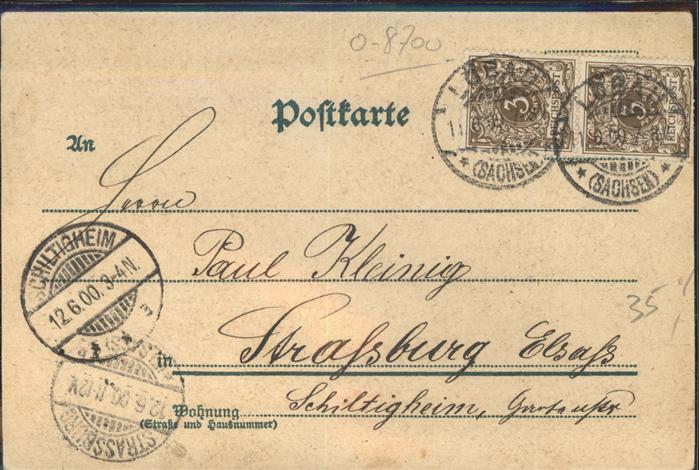 0-8700
LÖBAU
(SACHSEN)
3
REICHSPOST
LÖBAU
(SACHSEN)
3
REICHSPOST
Postkarte
An
Herrn
Paul Kleinig
in Straßburg Elsaß
Schiltigheim,
Wohnung
(Straße und Hausnummer)
SCHILTIGHEIM
12.6.00. 3-4N.
STRASSBURG
12.6.00.
35